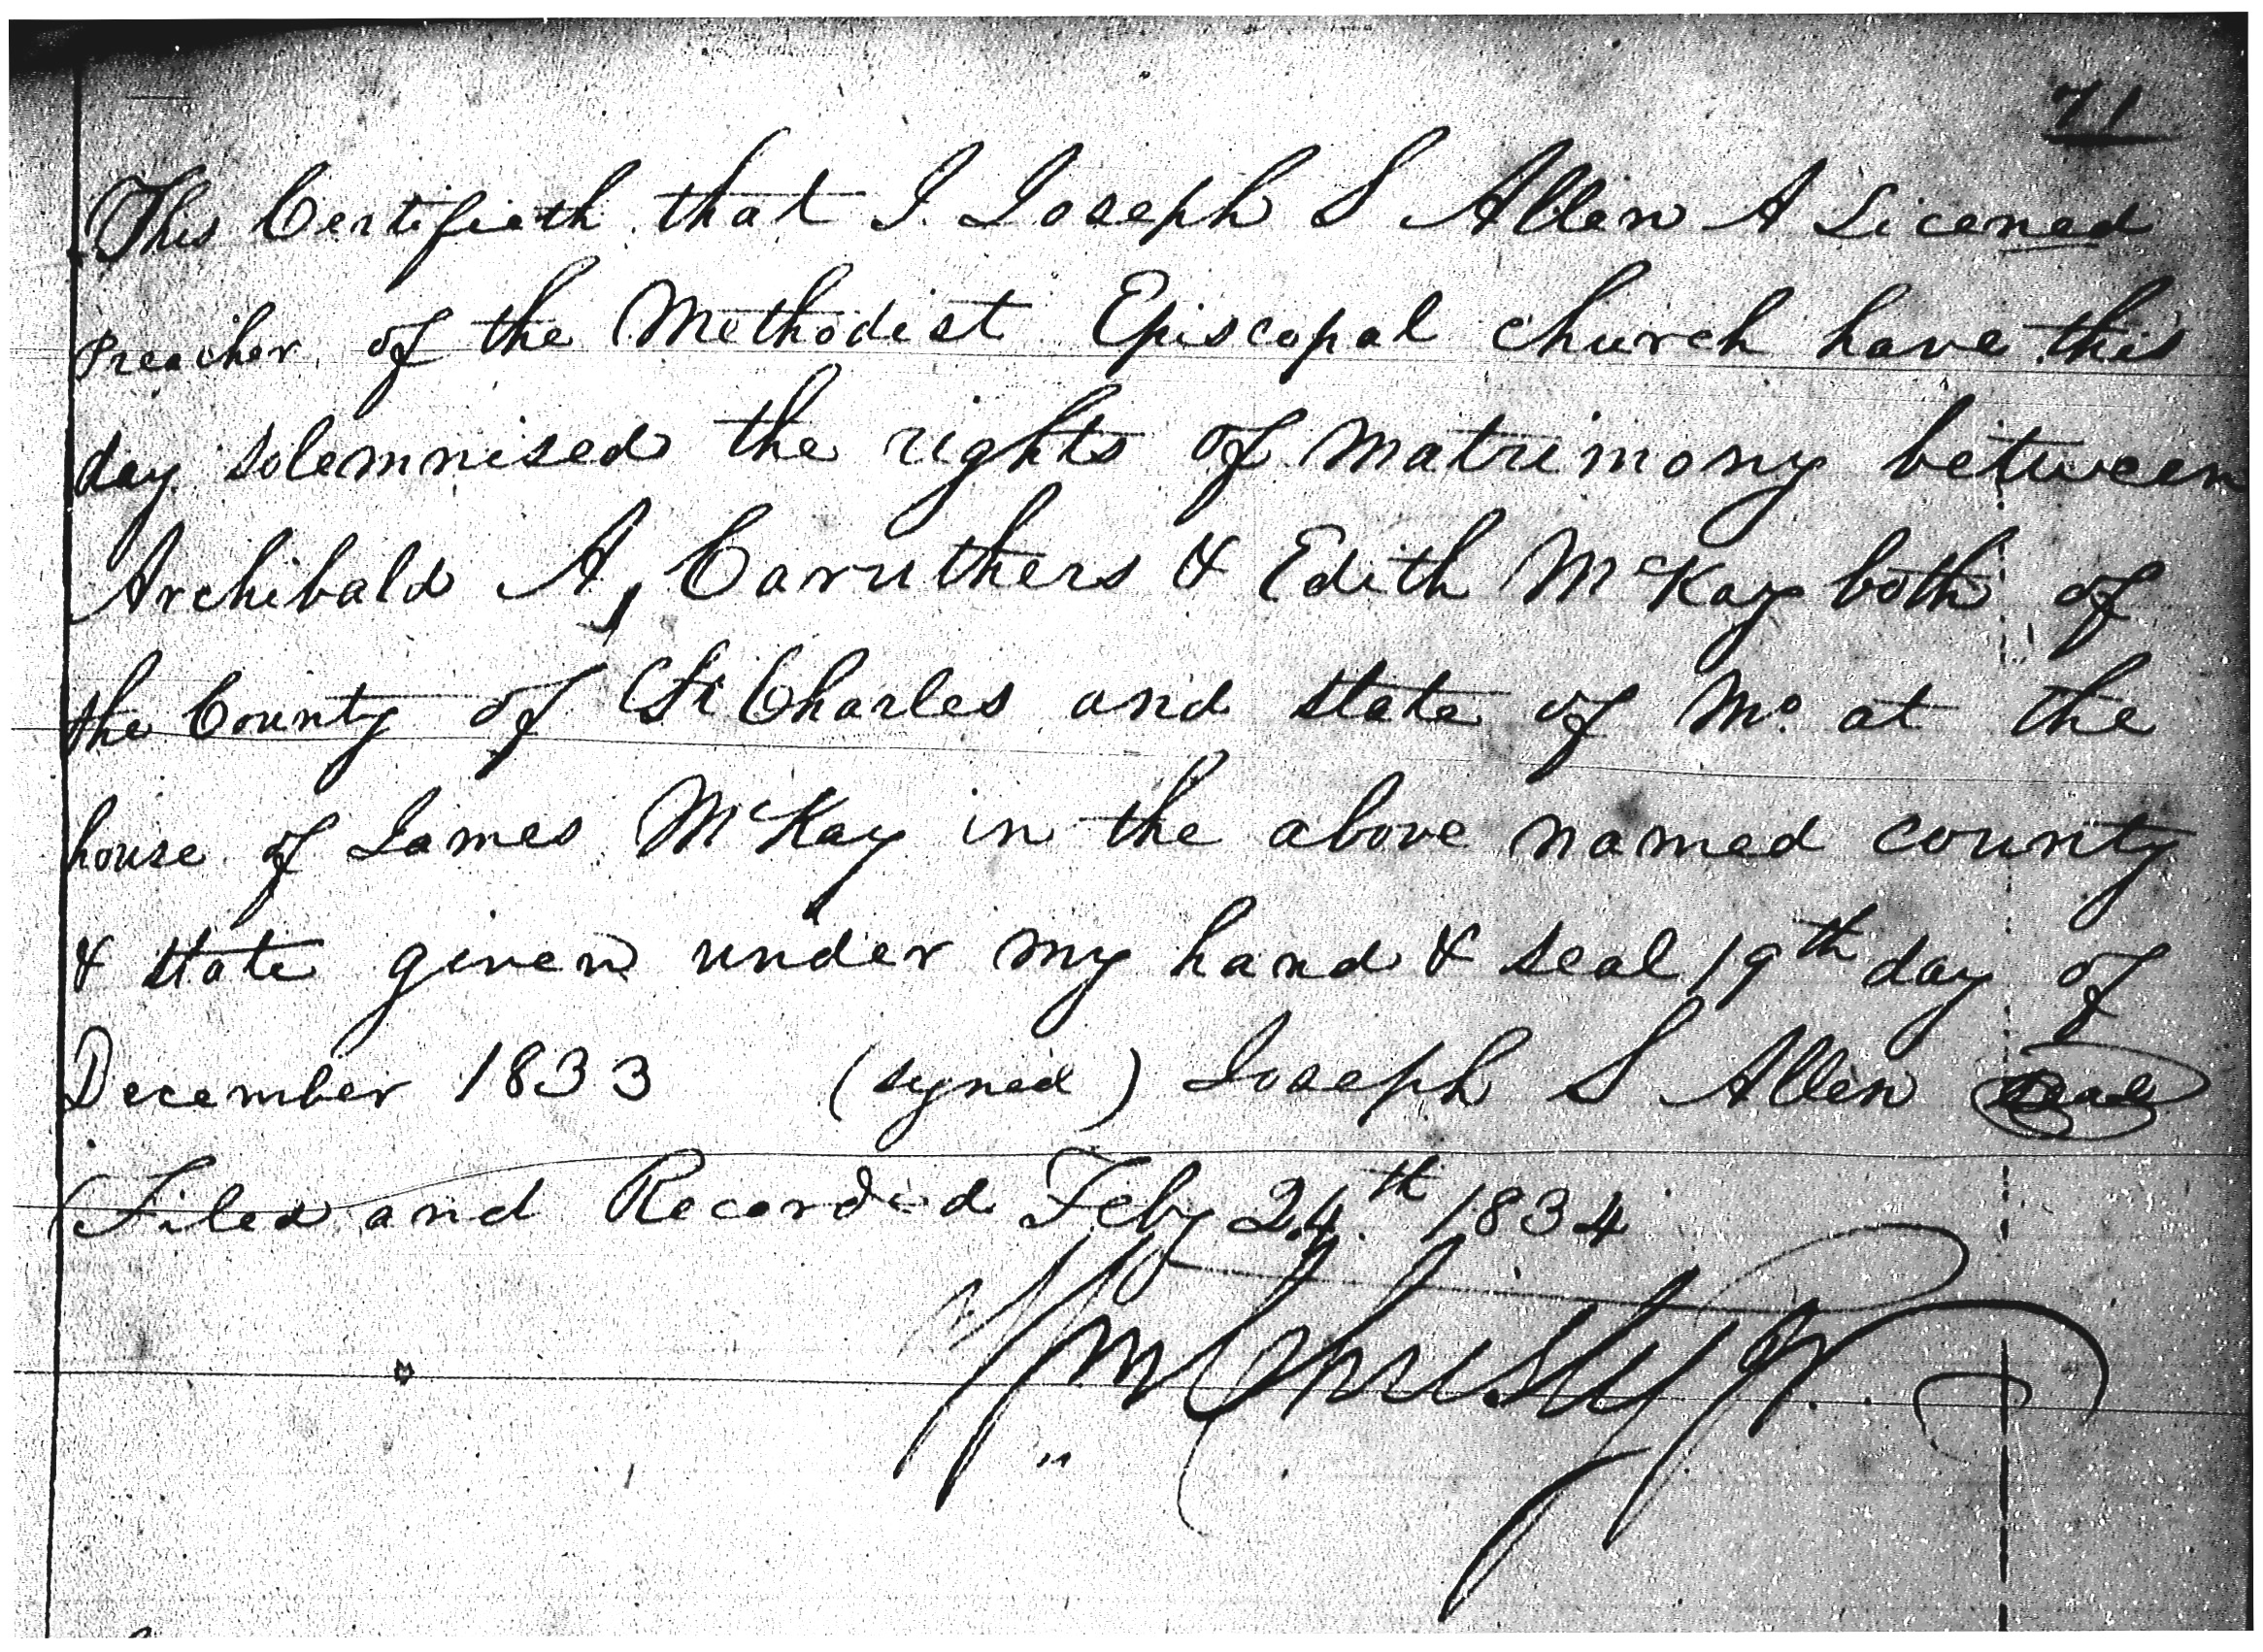 71
This Certifieth that I Joseph S Allen A Licened
Preacher of the Methodist Episcopal church have this
day solemnised the rights of matrimony between
Archibald A, Caruthers & Edith McKay both of
the County of St Charles and state of Mo. at the
house of James McKay in the above named county
& state given under my hand & seal 19th day of
December 1833 (signed) Joseph S Allen Seal
Filed and Recorded Feby 24th 1834
Wm Christy Jr.